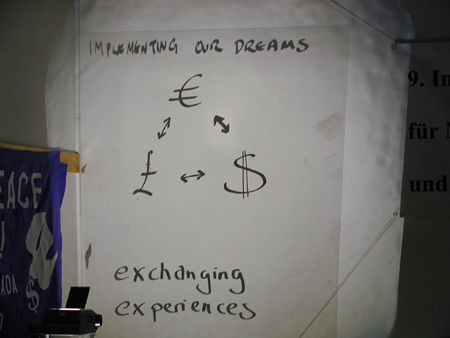 IMPLEMENTING OUR DREAMS
€
£ $
exchanging
experiences
EACE
!
ADA
$
9. In
für
und